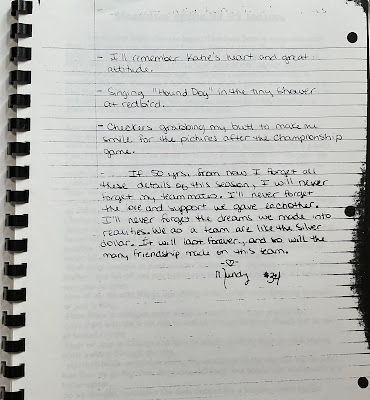 - I'll remember Katie's heart and great
attitude.
- Singing "Hound Dog" in the tiny shower
at redbird.
- Checkers grabbing my butt to make me
smile for the pictures after the championship
game.
- If 50 yrs. from now I forget all
these details of this season, I will never
forget my teammates. I'll never forget
the love and support we gave eachother.
I'll never forget the dreams we made into
realities. We as a team are like the silver
dollar. It will last forever, and so will the
many friendship made on this team.
-♡-
Mindy #34